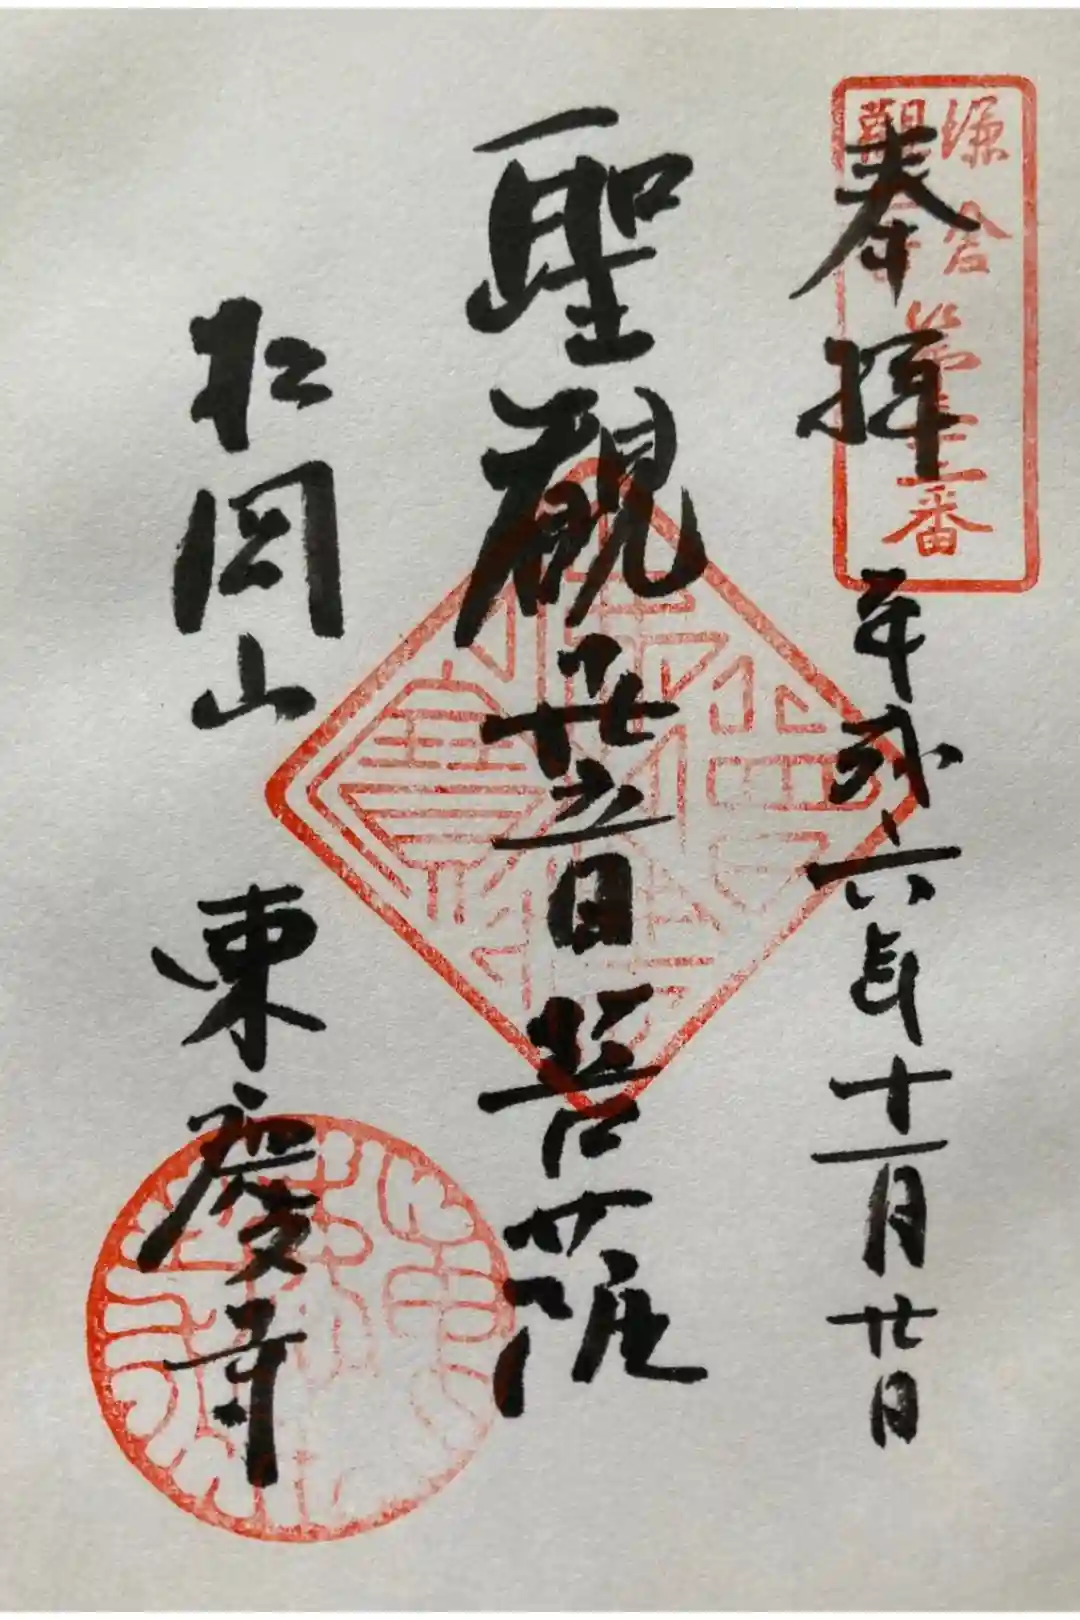 鎌倉
觀音
番
奉拝 平成六年十一月廿日
聖觀世音菩薩
松岡山 東慶寺